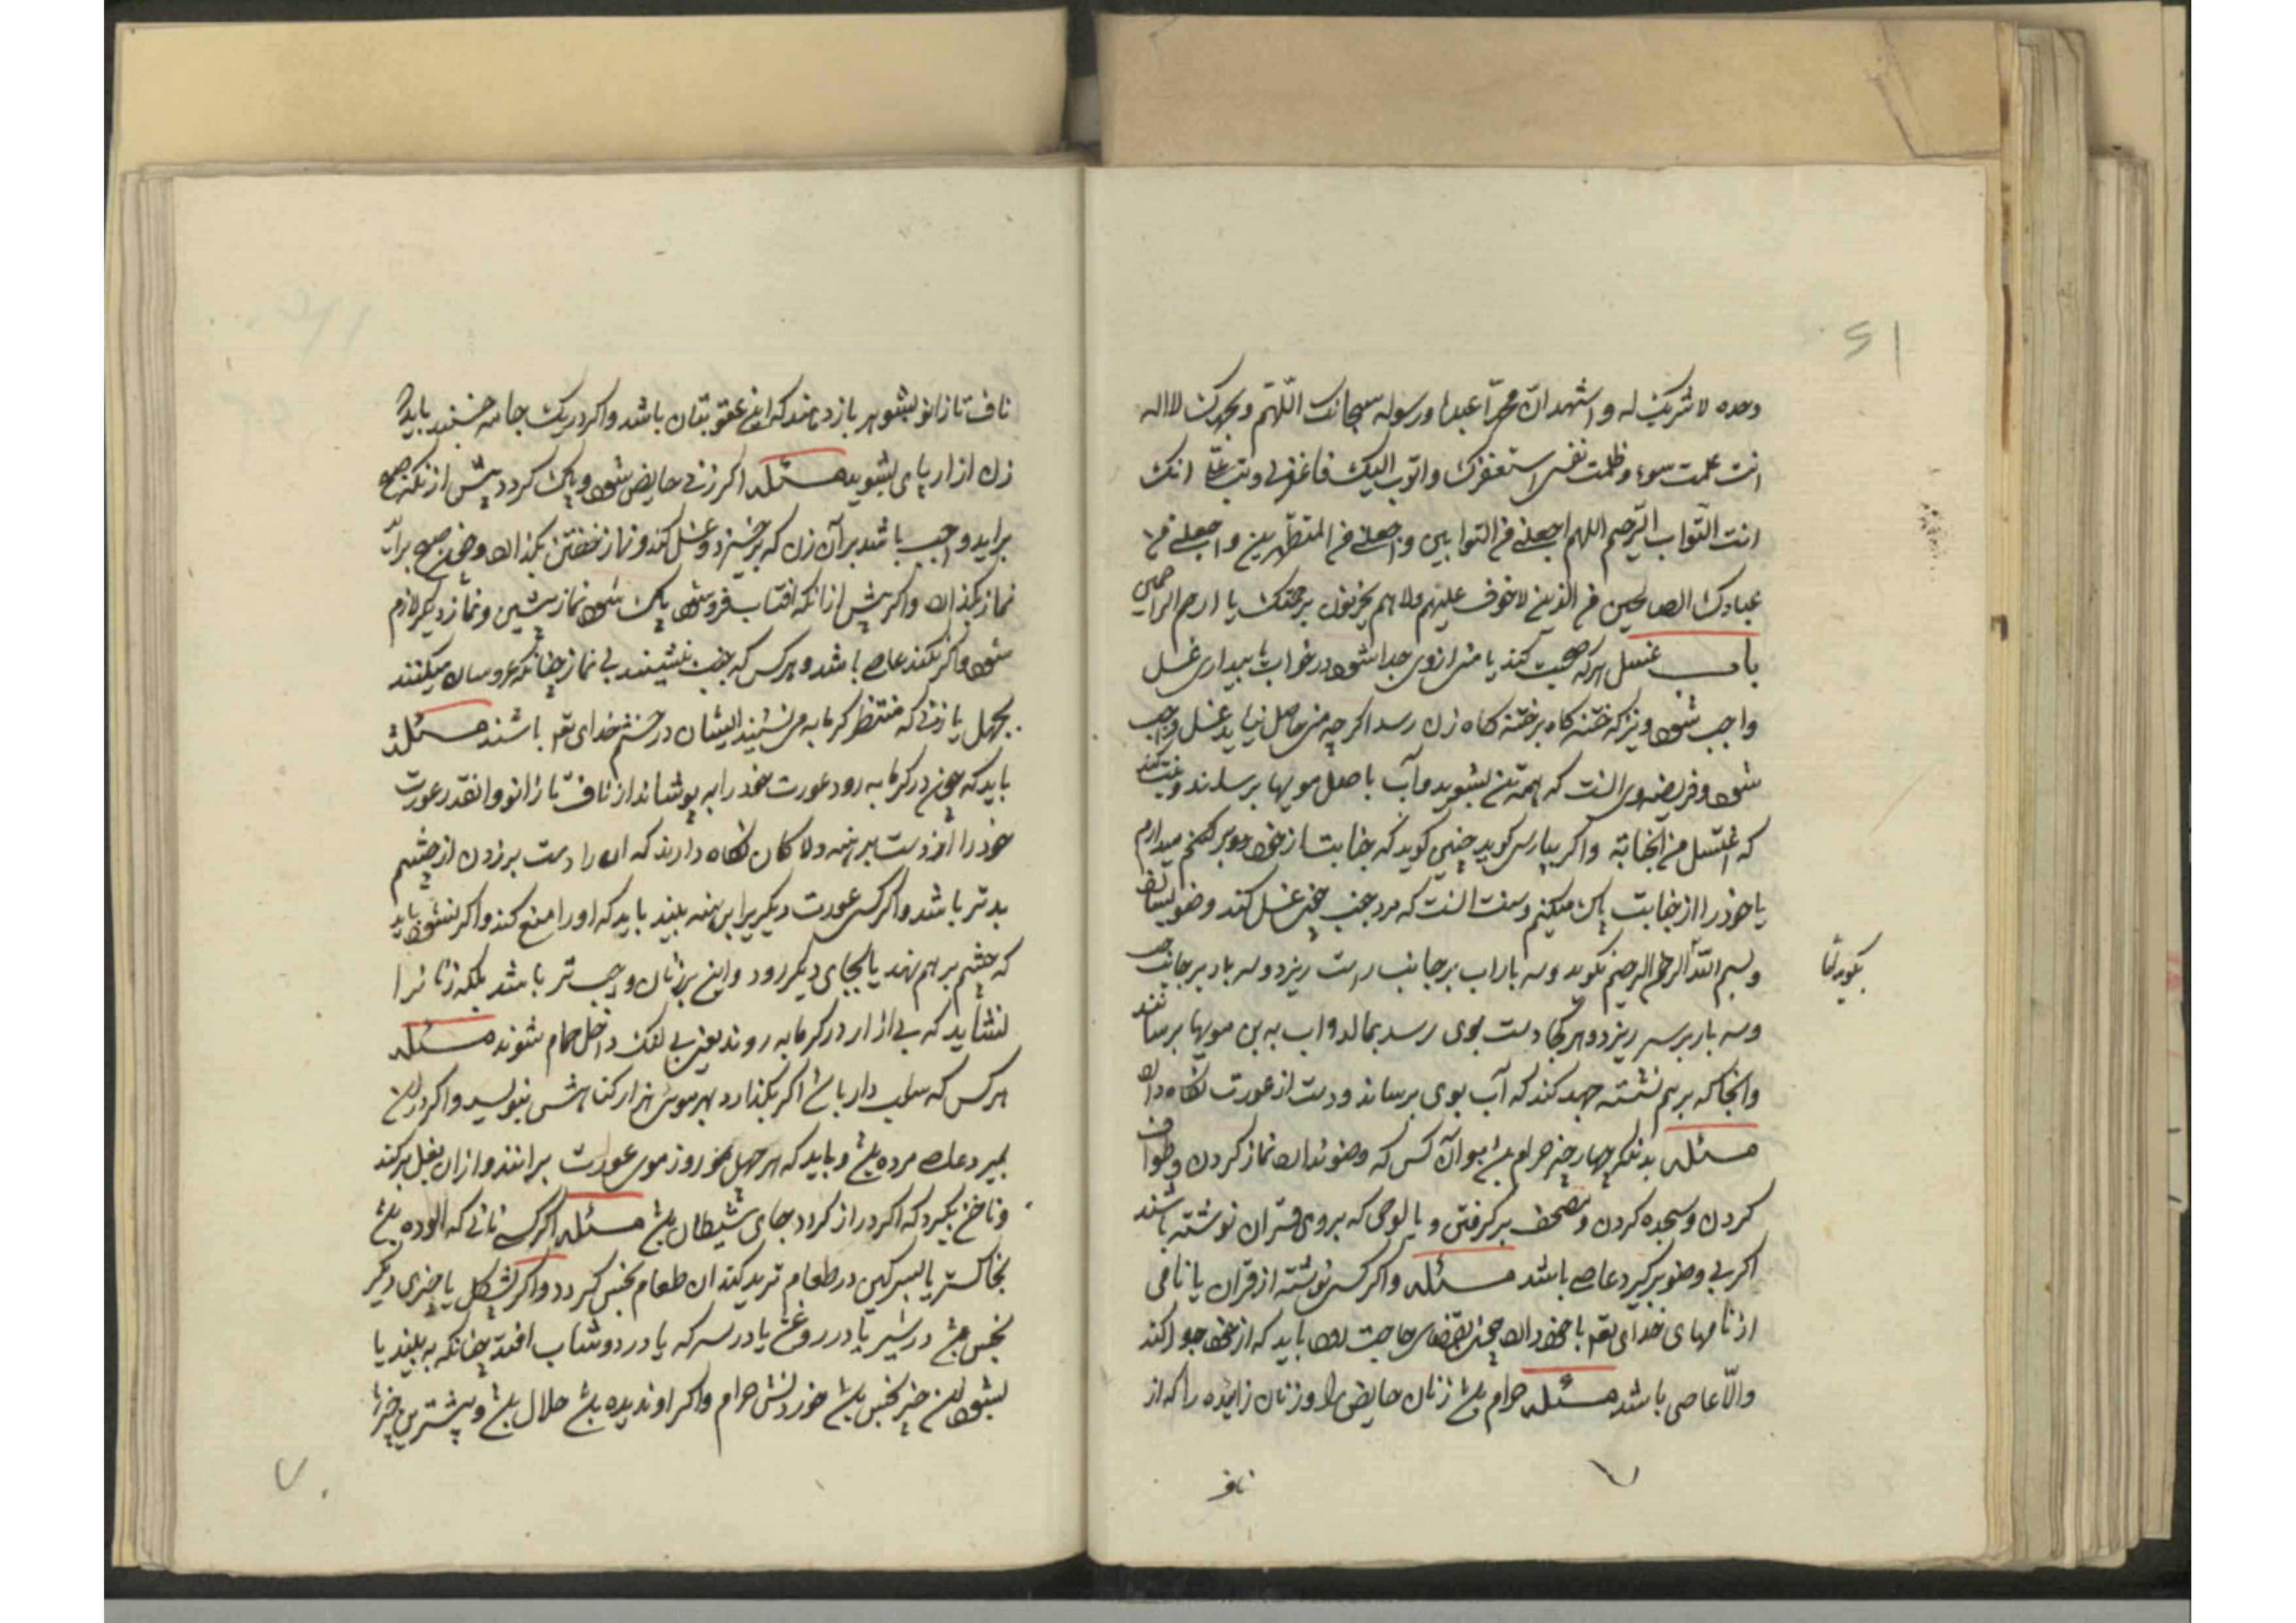 وحده لا شریک له و اشهد ان محمّداً عبده و رسوله سبحانک اللّهم و بحمدک لا اله
انت عملت سوءً و ظلمت نفسی استغفرک و اتوب الیک فاغفرلی و تب علیّ انک
انت التّواب الرّحیم اللهم اجعلنی من التوابین و اجعلنی من المتطهّرین و اجعلنی من
عبادک الصالحین من الذین لا خوف علیهم ولا هم یحزنون برحمتک یا ارحم الراحمین
باب غسل هر که صحبت کند یا منی از وی جدا شود در خواب یا بیداری غسل
واجب شود و نیز که ختنه کاه بر ختنه کاه زن رسد اکر چه منی حاصل نیاید غسل واجب
شود و فریضه وی انست که همه تن بشوید و آب باصل مویها برساند و نیت کند
که اغتسل من الجنابة و اکر بپارسی کوید چنین کوید که جنابت از خود دور کنم میدارم
یا خود را از جنابت پاک میکنم و سنت انست که مرد جنب چون غسل کند وضو بسازد
و بسم الله الرحمن الرحیم بکوید و سه بار اب بر جانب راست ریزد و سه بار بر جانب چپ
بکوید
و سه بار بر سر ریزد و هر کجا دست بوی رسد بمالد و اب به بن مویها برساند
و انجا که بر هم نشسته جهد کند که آب بوی برساند و دست از عورت نکاه دارد
مسئله بدانکه چهار چیز حرام باشد بر آن کس که وضو ندارد نماز کردن و طواف
کردن و سجده کردن و مصحف بر کرفتن و یا لوحی که بروی قران نوشته باشند
اکر بی وضو برکیرد عاصی باشد مسئله و اکر کسی نوشته از قران یا نامی
از نامهای خدای تع با خود دارد چون بقضای حاجت رود باید که از خود جدا کند
والّا عاصی باشد مسئله حرام باشد زنان حایض را و زنان زاینده را که از
ناف
ناف تا زانو بشوهر باز دهند که این عقوبتان باشد و اکر در یک جامه خسبند باید که
زن ازار پای بشوید مسئله اکر زنی حایض شود و پاک کردد پیش از آنکه صبح
براید واجب باشد بر آن زن که برخیزد و غسل کند و نماز خفتن بکذارد و چون صبح براید
نماز بکذارد و اکر پیش از آنکه افتاب فرو شود پاک شود نماز پیشین و نماز دیکر لازم
شود و اکر نکند عاصی باشد و هر کس که جنب نشیند بی نماز چنانکه عروسان میکنند
بجهل یا زنی که منتظر کرمابه می نشیند ایشان در خشم خدای تع باشند مسئله
باید که چون در کرمابه رود عورت خود را به پوشاند از ناف تا زانو و انقدر عورت
خود را از دست برهنه نکاه دارند که ان را دست بر زدن از چشم
بدتر باشد و اکر کسی عورت دیکریرا برهنه بیند باید که او را منع کند و اکر نشنود باید
که چشم بر هم نهد یا بجای دیکر رود و این بر زنان واجب تر باشد بلکه زنانرا
نشاید که بی ازار در کرمابه روند یعنی بی لنک داخل حمام شوند مسئله
هر کس که سبلت دار باشد اکر بکذارد بهر موی هزار کناهش بنویسد و اکر در این
بمیرد عاصی مرده باشد و باید که هر چهل روز موی عورت براند و ازان بغل برکند
و ناخن بکیرد که اکر دراز کردد جای شیطان باشد مسئله اکر کسی نانی که الوده باشد
بخاکستر یا بسرکین در طعام ترید کند ان طعام نجس کردد و اکر پشکل یا چیزی دیکر
نجس باشد در شیر یا در روغن یا در سرکه یا در دوشاب افتد چنانکه به بیند یا
بشنود این چیز نجس باشد خوردنش حرام و اکر او ندیده باشد حلال باشد و بیشترین چیزها